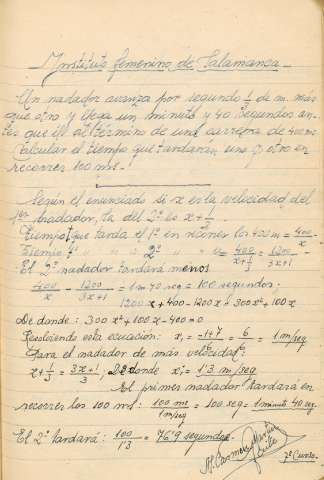 Instituto femenino de Salamanca
Un nadador avanza por segundo 1/3 de m. más
que otro y llega un minuto y 40 segundos an-
tes que él al término de una carrera de 400 ms
Calcular el tiempo que tardarán uno y otro en
recorrer 100 ms.
Según el enunciado si x es la velocidad del
1er nadador, la del 2º es x + 1/3.
Tiempo que tarda el 1º en recorrer los 400 m = 400/x
Tiempo " " " 2º " " = 400/(x + 1/3) = 1200/(3x+1)
El 2º nadador tardará menos
400/x - 1200/(3x+1) = 1 m 40 seg = 100 segundos.
1200x + 400 - 1200x = 300x² + 100x
De donde: 300x² + 100x - 400 = 0
Resolviendo esta ecuación: x₁ = (-1+7)/6 = 6/6 = 1 m/seg
Para el nadador de más velocidad:
x + 1/3 = (3x+1)/3; donde x = 1'3 m/seg
El primer nadador tardará en
recorrer los 100 ms: 100 m/1 m/seg = 100 seg = 1 minuto 40 seg.
El 2º tardará: 100/1'3 = 76'9 segundos.
M. Carmen Martín
7º Curso.